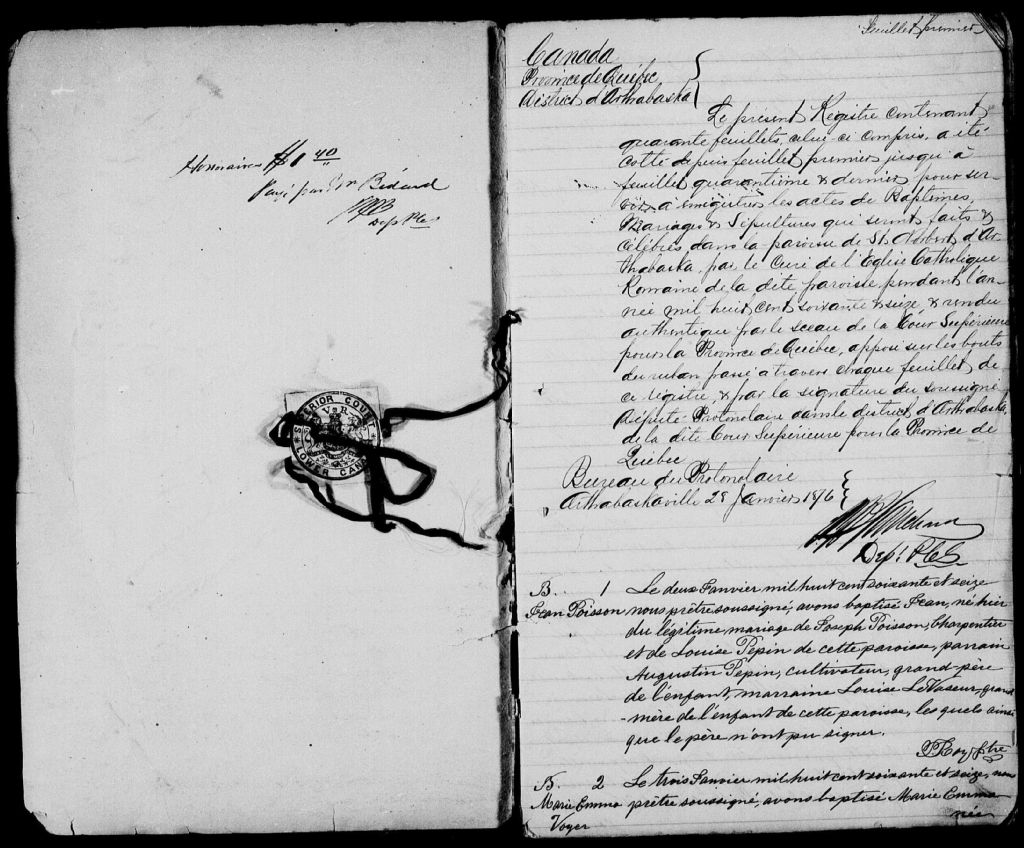 Honoraires $1 40
Payé par Mr Bédard
Dep P.C.S.
SUPERIOR COURT
V R
LOWER CANADA
Feuillet premier
Canada
Province de Québec
District d'Arthabaska
Le présent Régistre contenant
quarante feuillets, celui-ci compris, a été
cotté depuis feuillet premier jusqu'à
feuillet quarantième & dernier pour ser-
vir à enrégistrer les actes de Baptêmes,
Mariages & Sépultures qui seront faits &
célébrés dans la paroisse de St. Norbert d'Ar-
thabaska, par le Curé de l'Eglise Catholique
Romaine de la dite paroisse, pendant l'an-
née mil huit cent soixante & seize, & rendu
authentique par le sceau de la Cour Supérieure
pour la Province de Québec, apposé sur les bouts
du ruban passé à travers chaque feuillet de
ce régistre, & par la signature du soussigné
Député Protonotaire dans le district d'Arthabaska,
de la dite Cour Supérieure pour la Province de
Québec
Bureau du Protonotaire
Arthabaskaville 28 Janvier 1876
Dept P.C.S.
B. 1 Le deux Janvier mil huit cent soixante et seize
Jean Poisson nous prêtre soussigné, avons baptisé Jean, né hier
du légitime mariage de Joseph Poisson, Charpentier
et de Louise Pepin de cette paroisse, parrain
Augustin Pepin, cultivateur, grand-père
de l'enfant, marraine Louise LeVaseur, grand
-mère de l'enfant de cette paroisse, les quels ainsi
que le père n'ont pu signer.
J Roy ptre
B. 2 Le trois Janvier mil huit cent soixante et seize, nous
Marie Emma prêtre soussigné, avons baptisé Marie Emma
Voyer née